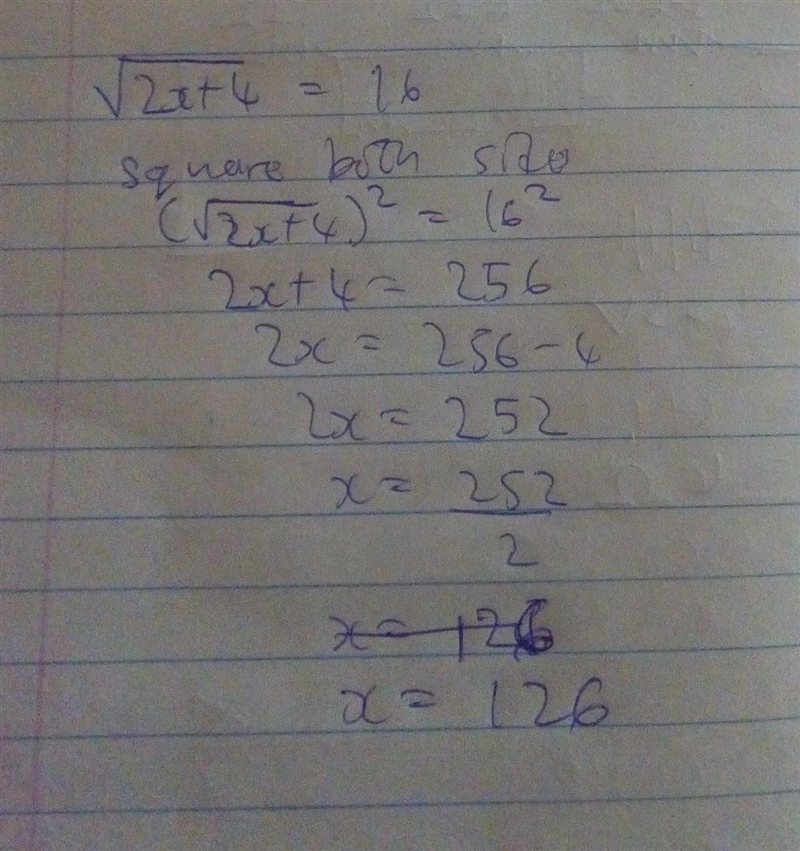 √2x+4 = 16
square both side
(√2x+4)² = 16²
2x+4 = 256
2x = 256-4
2x = 252
x = 252
2
x = 126
x = 126